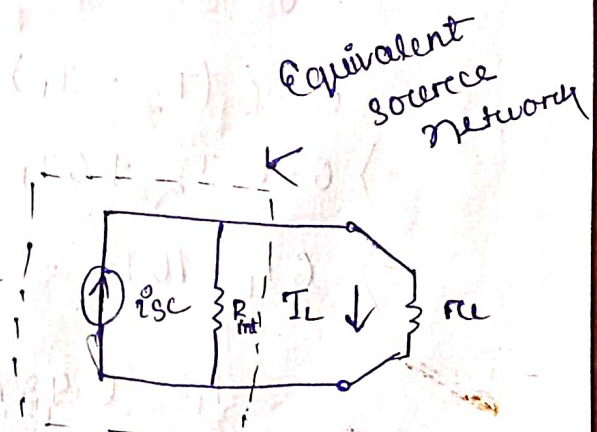 Equivalent
source
network
isc
Rint
IL
rL